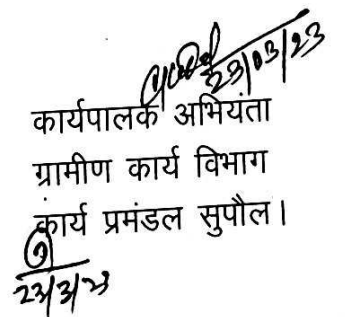 23/03/23
कार्यपालक अभियंता
ग्रामीण कार्य विभाग
कार्य प्रमंडल सुपौल।
23/3/23